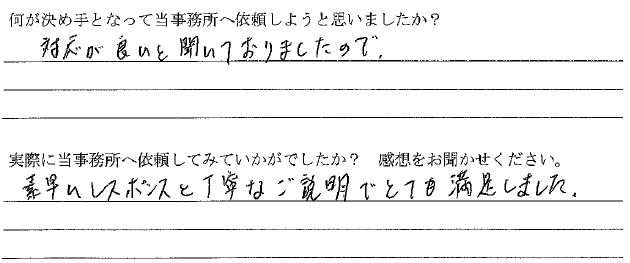 何が決め手となって当事務所へ依頼しようと思いましたか？
対応が良いと聞いておりましたので。
実際に当事務所へ依頼してみていかがでしたか？　感想をお聞かせください。
素早いレスポンスと丁寧なご説明でとても満足しました。